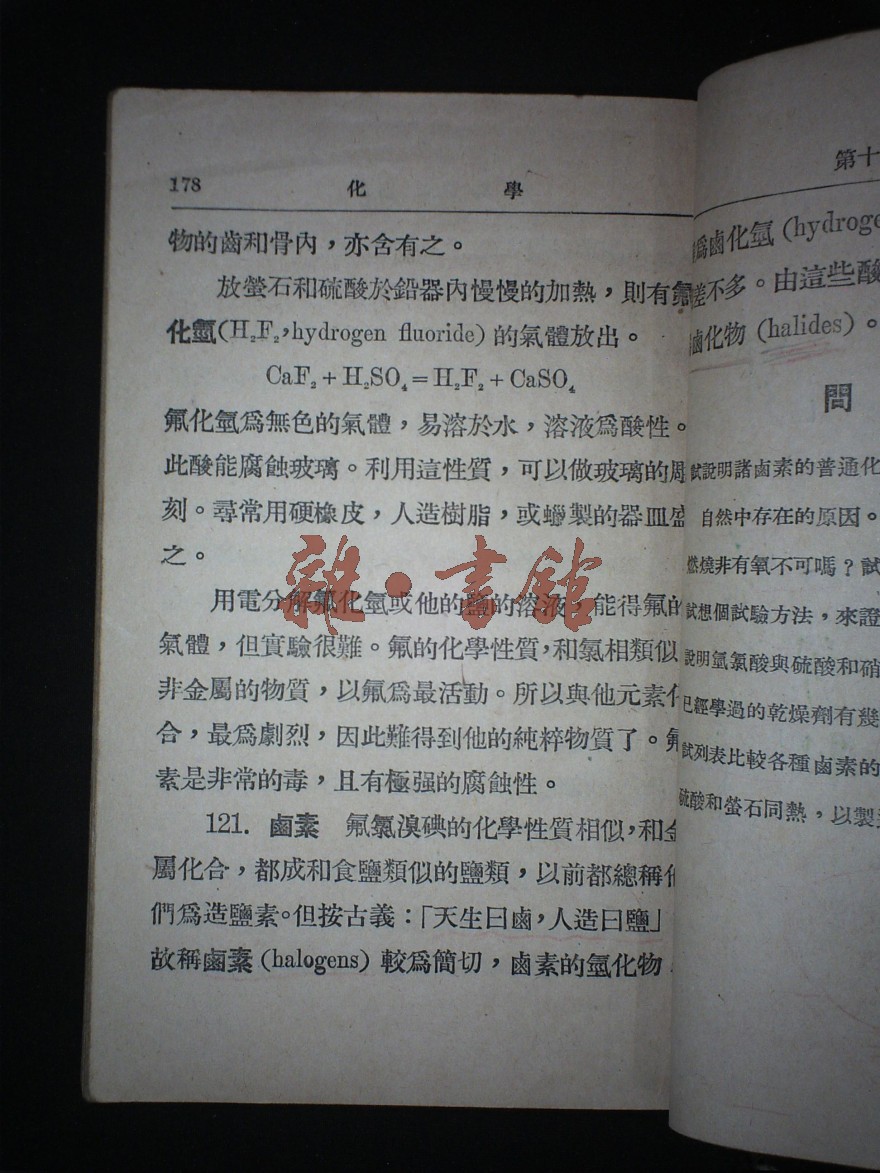 178 化 學
物的齒和骨內，亦含有之。
放螢石和硫酸於鉛器內慢慢的加熱，則有氟
化氫(H₂F₂,hydrogen fluoride)的氣體放出。
CaF₂+H₂SO₄=H₂F₂+CaSO₄
氟化氫爲無色的氣體，易溶於水，溶液爲酸性。
此酸能腐蝕玻璃。利用這性質，可以做玻璃的彫
刻。尋常用硬橡皮，人造樹脂，或蠟製的器皿盛
之。
用電分解氟化氫或他的鹽的溶液，能得氟的
氣體，但實驗很難。氟的化學性質，和氯相類似
非金屬的物質，以氟爲最活動。所以與他元素化
合，最爲劇烈，因此難得到他的純粹物質了。氟
素是非常的毒，且有極强的腐蝕性。
121. 鹵素 氟氯溴碘的化學性質相似，和金
屬化合，都成和食鹽類似的鹽類，以前都總稱他
們爲造鹽素。但按古義：「天生曰鹵，人造曰鹽」
故稱鹵素(halogens)較爲簡切，鹵素的氫化物
雜·書館
第十
爲鹵化氫(hydroge
差不多。由這些酸
鹵化物(halides)。
問
試說明諸鹵素的普通化
自然中存在的原因。
燃燒非有氧不可嗎？試
試想個試驗方法，來證
說明氫氯酸與硫酸和硝
已經學過的乾燥劑有幾
試列表比較各種鹵素的
硫酸和螢石同熱，以製